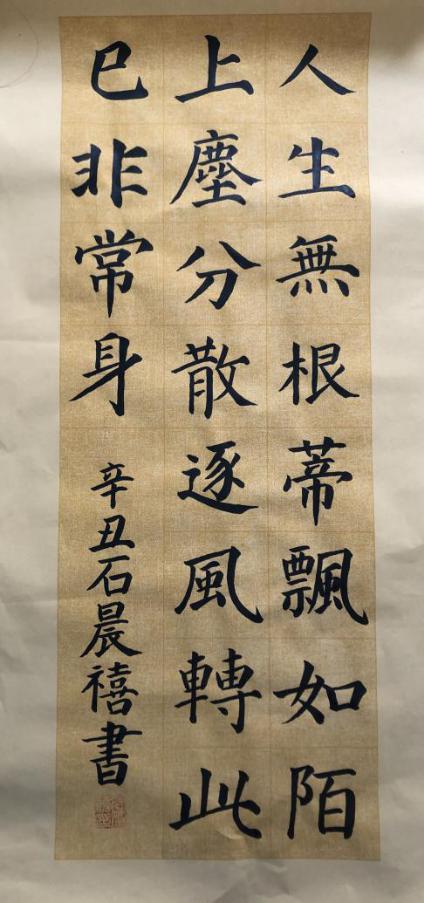 人生無根蒂飄如陌
上塵分散逐風轉此
已非常身
辛丑石晨禧書